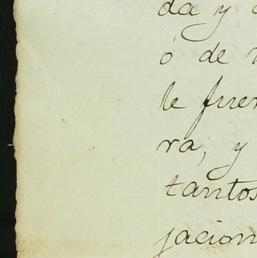 da y
ó de
le fuer
ra, y
tantos
jacion